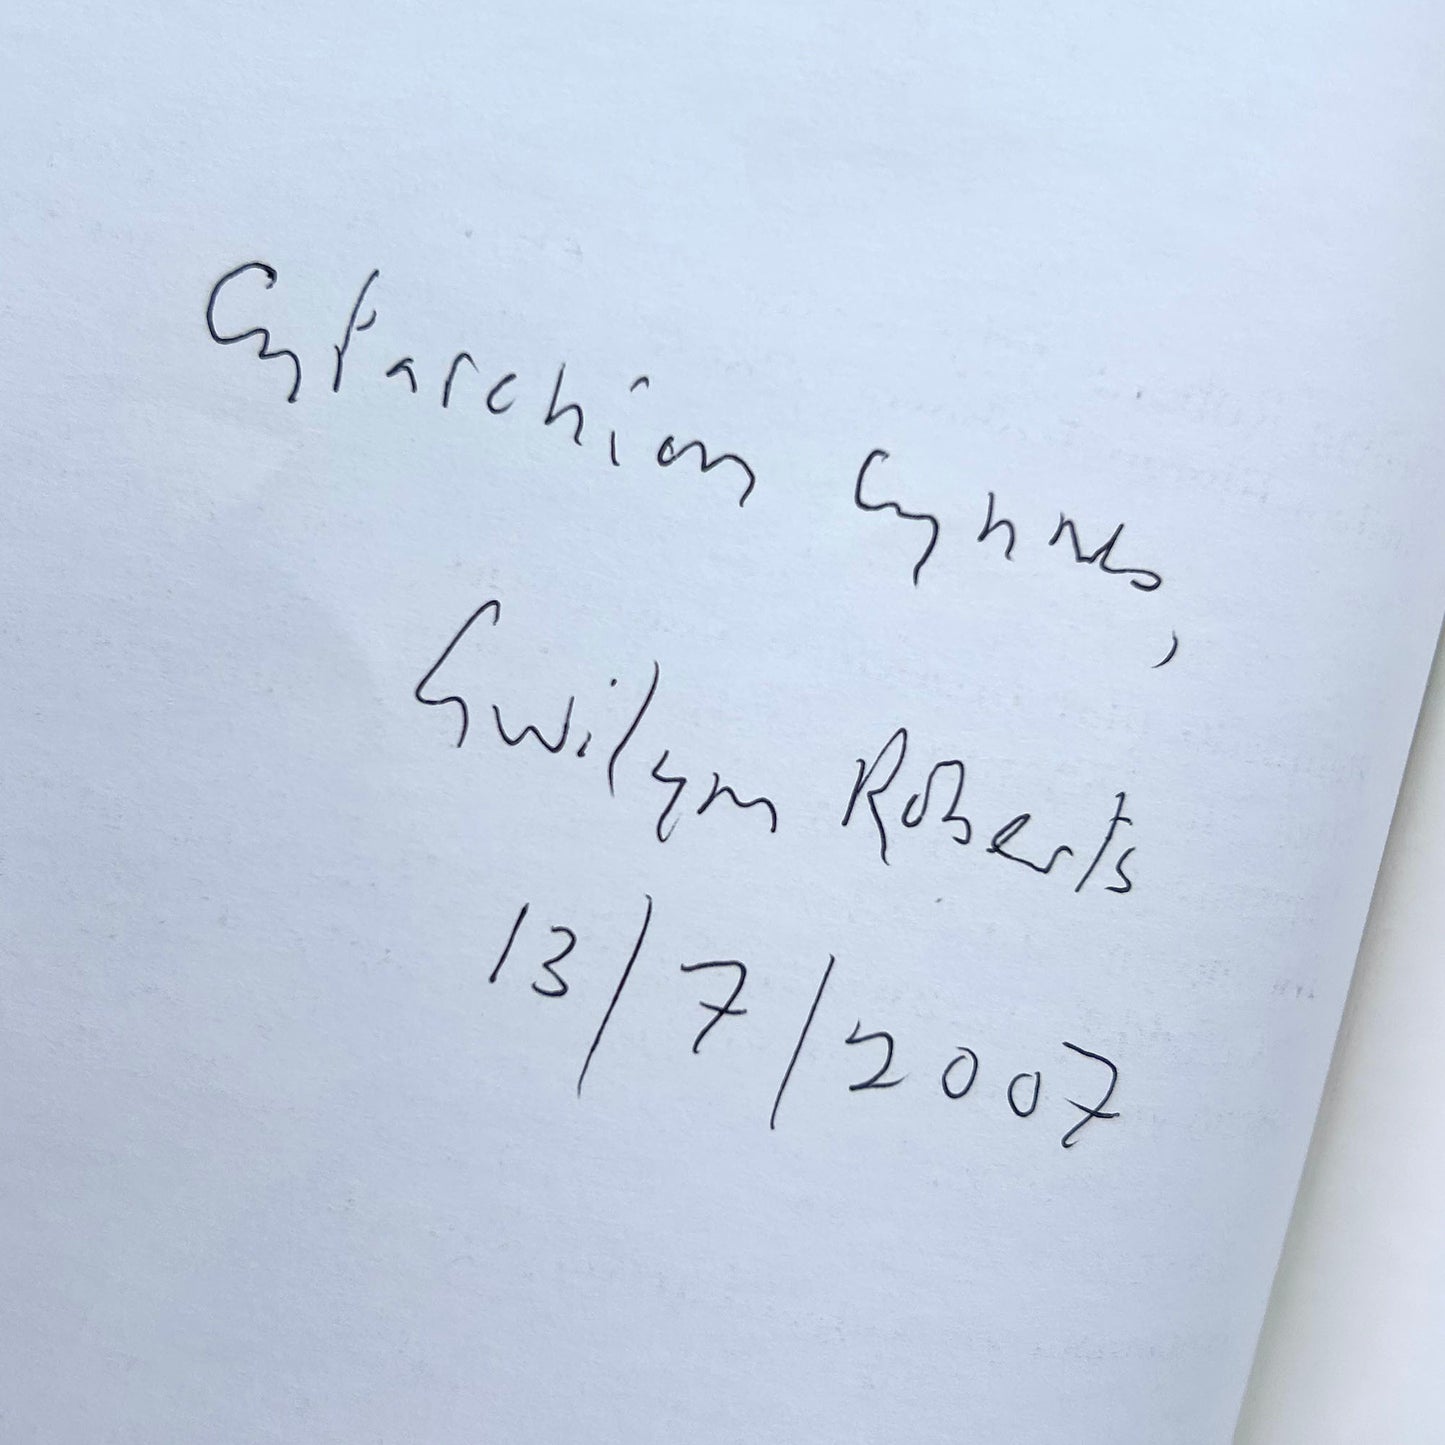 Cyfarchion Cynnes,
Gwilym Roberts
13/7/2007